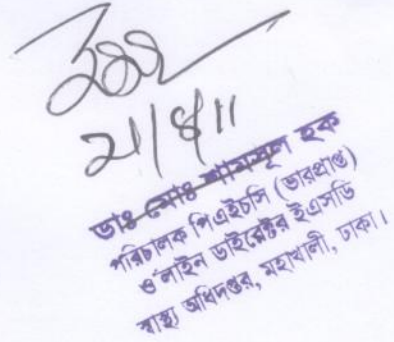 21/8/11
ডাঃ মোঃ শামসুল হক
পরিচালক পিএইচসি (ভারপ্রাপ্ত)
ও লাইন ডাইরেক্টর ইএসডি
স্বাস্থ্য অধিদপ্তর, মহাখালী, ঢাকা।